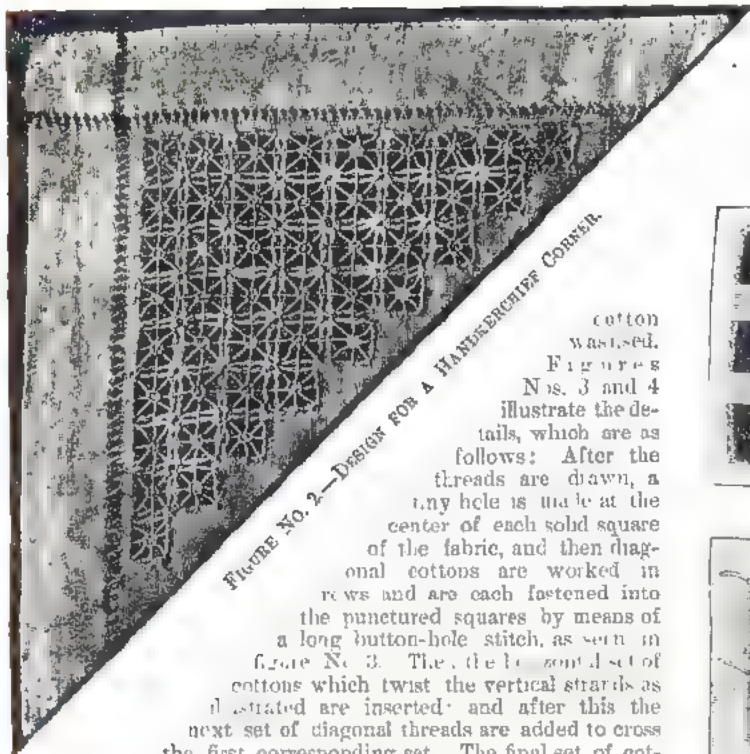 FIGURE NO. 2.—DESIGN FOR A HANDKERCHIEF CORNER.
cotton
was used.
Figures
Nos. 3 and 4
illustrate the de-
tails, which are as
follows: After the
threads are drawn, a
tiny hole is made at the
center of each solid square
of the fabric, and then diag-
onal cottons are worked in
rows and are each fastened into
the punctured squares by means of
a long button-hole stitch, as seen in
figure No. 3. Then the horizontal set of
cottons which twist the vertical strands as
illustrated are inserted; and after this the
next set of diagonal threads are added to cross
the first corresponding set. The final set of cot-